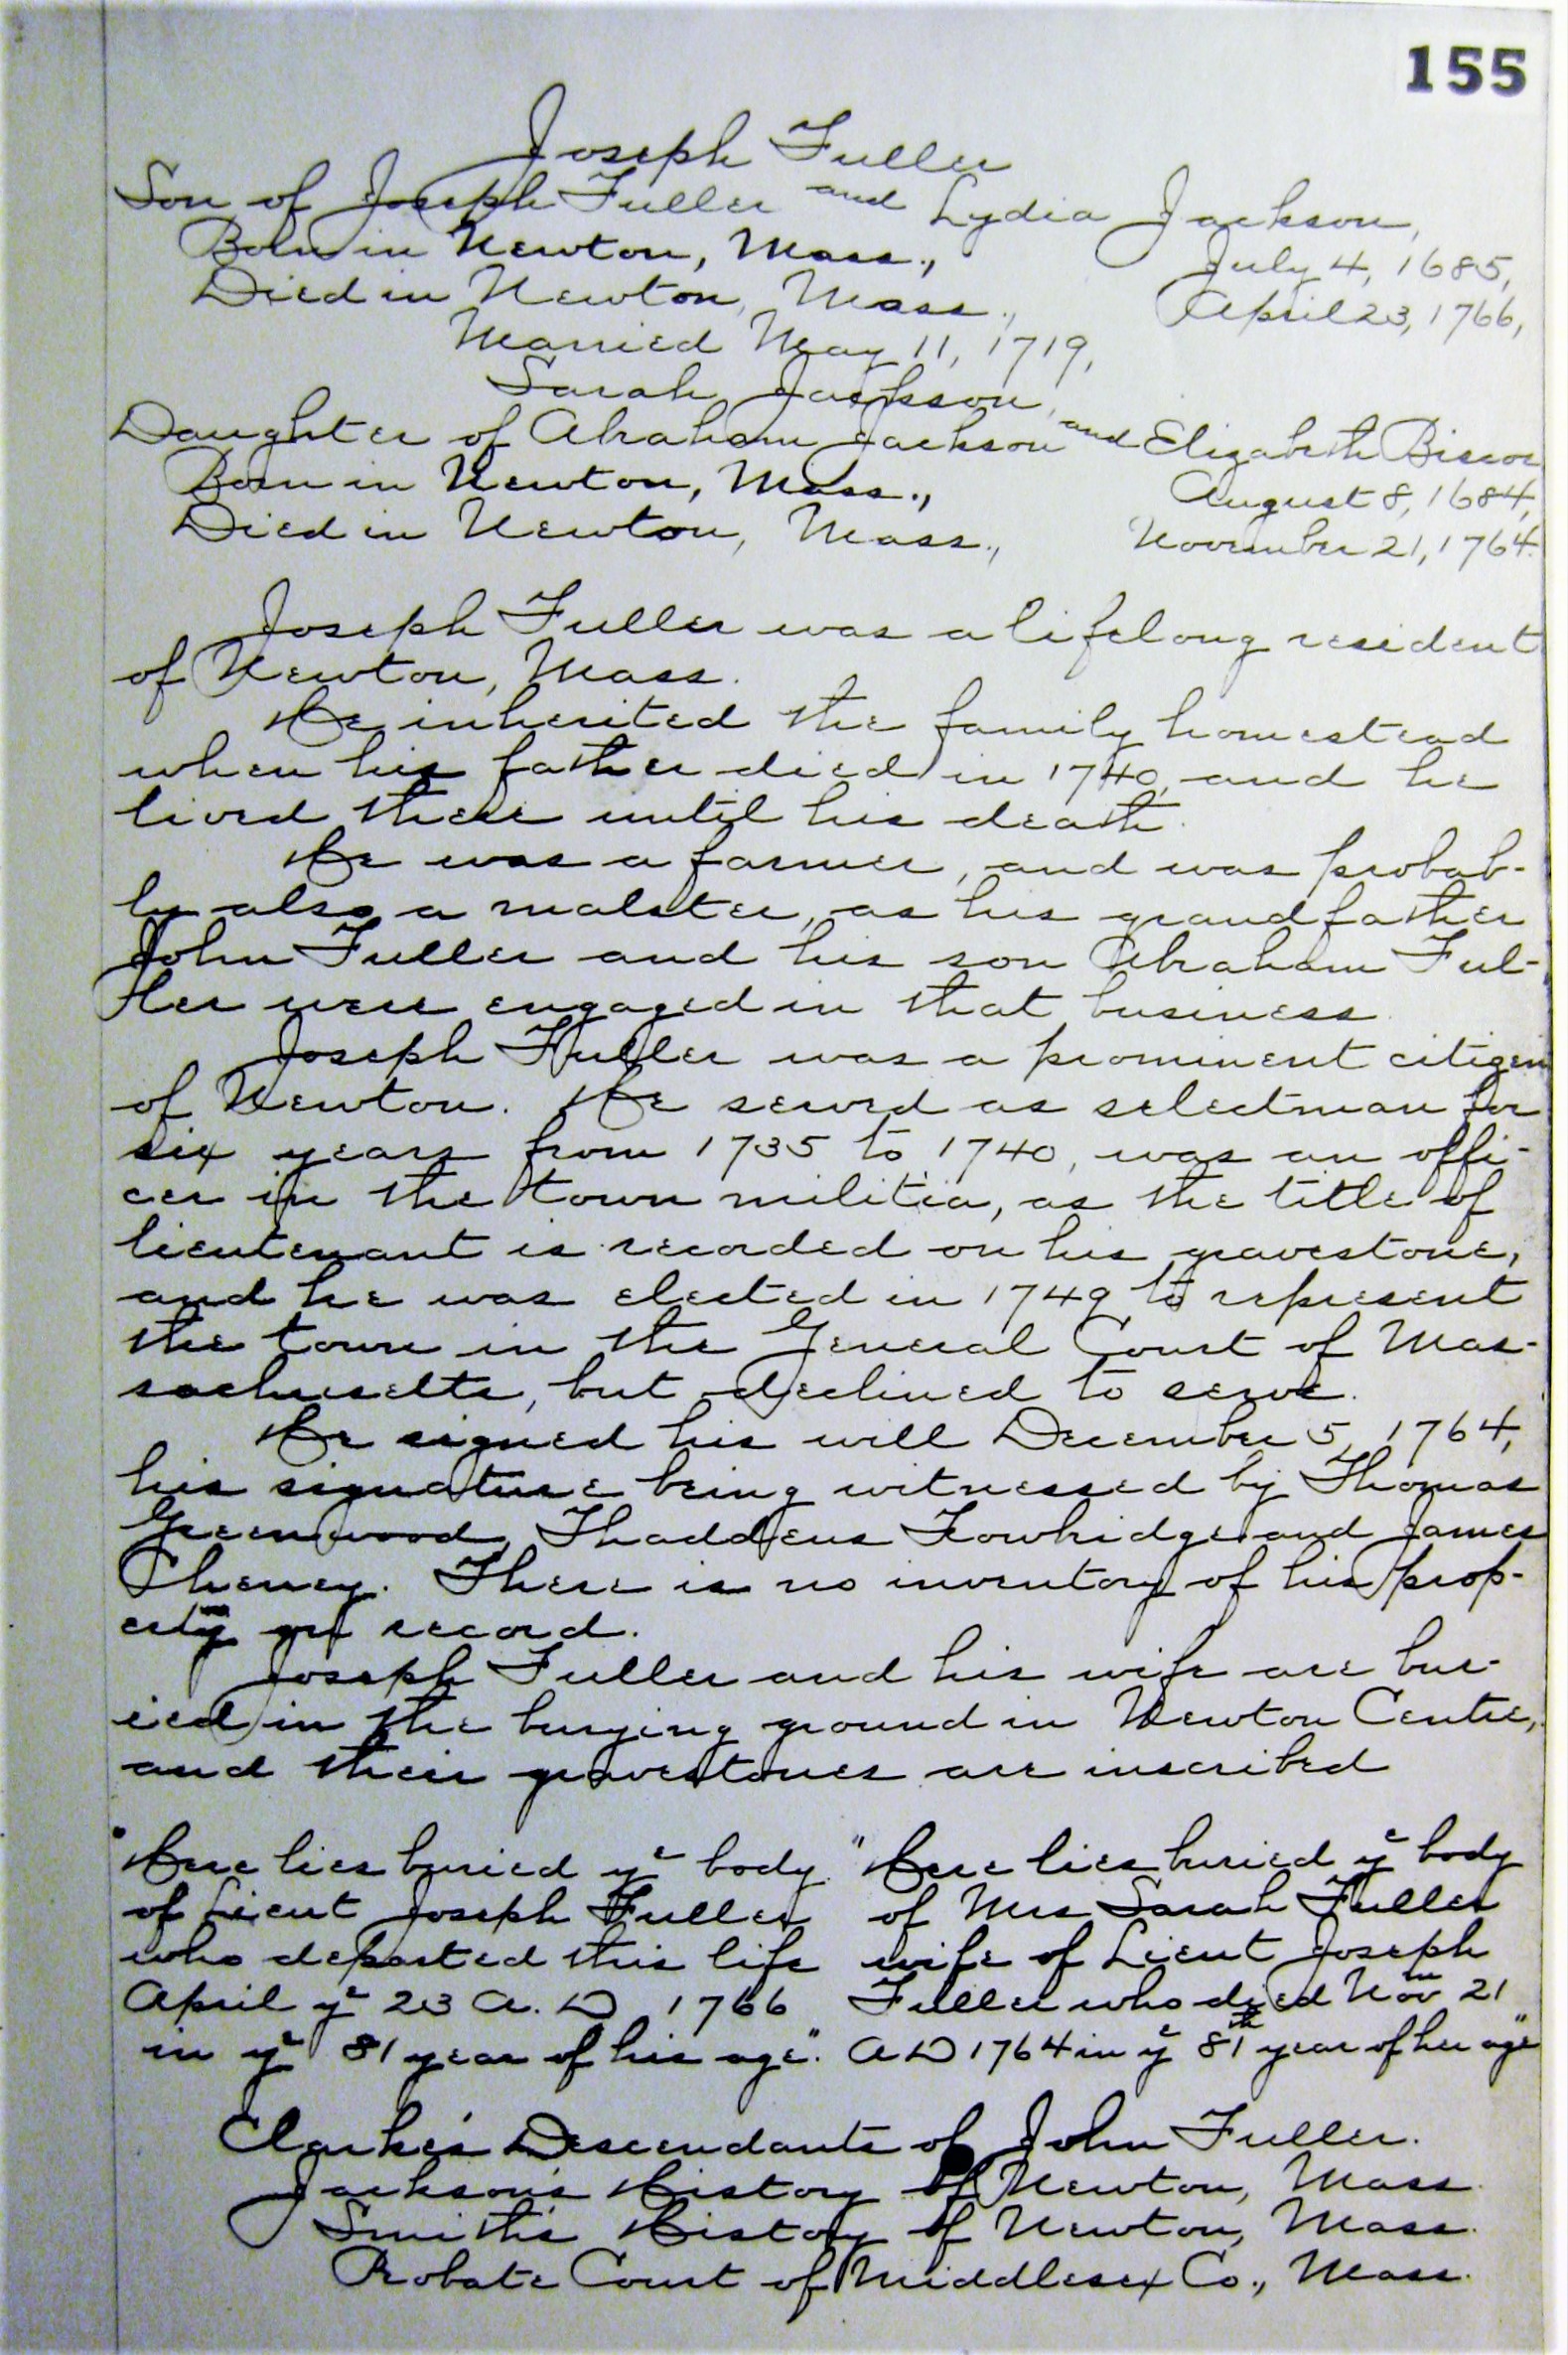 155
Joseph Fuller
Son of Joseph Fuller and Lydia Jackson,
Born in Newton, Mass., July 4, 1685,
Died in Newton, Mass., April 23, 1766,
Married May 11, 1719,
Sarah Jackson,
Daughter of Abraham Jackson and Elizabeth Biscoe
Born in Newton, Mass., August 8, 1684,
Died in Newton, Mass., November 21, 1764.
Joseph Fuller was a lifelong resident
of Newton, Mass.
He inherited the family homestead
when his father died in 1740, and he
lived there until his death.
He was a farmer, and was probab-
ly also a malster, as his grandfather
John Fuller and his son Abraham Ful-
ler were engaged in that business.
Joseph Fuller was a prominent citizen
of Newton. He served as selectman for
six years from 1735 to 1740, was an offi-
cer in the town militia, as the title of
lieutenant is recorded on his gravestone,
and he was elected in 1749 to represent
the town in the General Court of Mas-
sachusetts, but declined to serve.
He signed his will December 5, 1764,
his signature being witnessed by Thomas
Greenwood, Thaddeus Trowbridge and James
Cheney. There is no inventory of his prop-
erty on record.
Joseph Fuller and his wife are bur-
ied in the burying ground in Newton Centre,
and their gravestones are inscribed
"Here lies buried ye body
of Lieut Joseph Fuller
who departed this life
April ye 23 A. D 1766
in ye 81 year of his age."
"Here lies buried ye body
of Mrs Sarah Fuller
wife of Lieut Joseph
Fuller who died Novm 21
A D 1764 in ye 81th year of her age"
Clarke's Descendants of John Fuller.
Jackson's History of Newton, Mass.
Smith's History of Newton, Mass.
Probate Court of Middlesex Co., Mass.